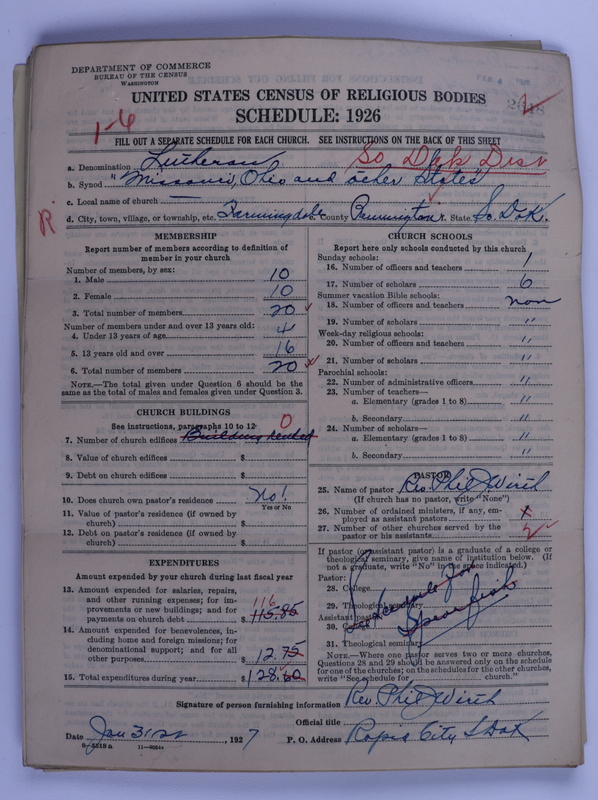 DEPARTMENT OF COMMERCE
BUREAU OF THE CENSUS
WASHINGTON
UNITED STATES CENSUS OF RELIGIOUS BODIES
SCHEDULE: 1926
1-6
FILL OUT A SEPARATE SCHEDULE FOR EACH CHURCH. SEE INSTRUCTIONS ON THE BACK OF THIS SHEET
a. Denomination Lutheran So. Dak Dist
b. Synod "Missouri, Ohio and other States"
c. Local name of church —
R
d. City, town, village, or township, etc. Farmingdale County Pennington State So. Dak.
MEMBERSHIP
Report number of members according to definition of
member in your church
Number of members, by sex:
1. Male 10
2. Female 10
3. Total number of members 20
Number of members under and over 13 years old:
4. Under 13 years of age 4
5. 13 years old and over 16
6. Total number of members 20
NOTE.—The total given under Question 6 should be the
same as the total of males and females given under Question 3.
CHURCH BUILDINGS
See instructions, paragraphs 10 to 12
7. Number of church edifices Building rented 0
8. Value of church edifices $
9. Debt on church edifices $
10. Does church own pastor's residence No!
Yes or No
11. Value of pastor's residence (if owned by
church) $
12. Debt on pastor's residence (if owned by
church) $
EXPENDITURES
Amount expended by your church during last fiscal year
13. Amount expended for salaries, repairs,
and other running expenses; for im-
provements or new buildings; and for
payments on church debt $ 115.85 116
14. Amount expended for benevolences, in-
cluding home and foreign missions; for
denominational support; and for all
other purposes 12.75
15. Total expenditures during year $ 128.60
CHURCH SCHOOLS
Report here only schools conducted by this church
Sunday schools:
16. Number of officers and teachers 1
17. Number of scholars 6
Summer vacation Bible schools:
18. Number of officers and teachers non
19. Number of scholars "
Week-day religious schools:
20. Number of officers and teachers "
21. Number of scholars "
Parochial schools:
22. Number of administrative officers "
23. Number of teachers—
a. Elementary (grades 1 to 8) "
b. Secondary "
24. Number of scholars—
a. Elementary (grades 1 to 8) "
b. Secondary "
PASTOR
25. Name of pastor Rev. Phil J. Wirth
(If church has no pastor, write "None")
26. Number of ordained ministers, if any, em-
ployed as assistant pastors x
27. Number of other churches served by the
pastor or his assistants 2
If pastor (or assistant pastor) is a graduate of a college or
theological seminary, give name of institution below. (If
not a graduate, write "No" in the space indicated.)
Pastor:
28. College
29. Theological seminary
Assistant pastor:
30. College
See Schedule for
Spearfish
31. Theological seminary
NOTE.—Where one pastor serves two or more churches,
Questions 28 and 29 should be answered only on the schedule
for one of the churches; on the schedules for the other churches,
write "See schedule for church."
Signature of person furnishing information Rev. Phil J. Wirth
Official title
Date Jan 31st, 1927 P. O. Address Rapid City S Dak
8-5518 a